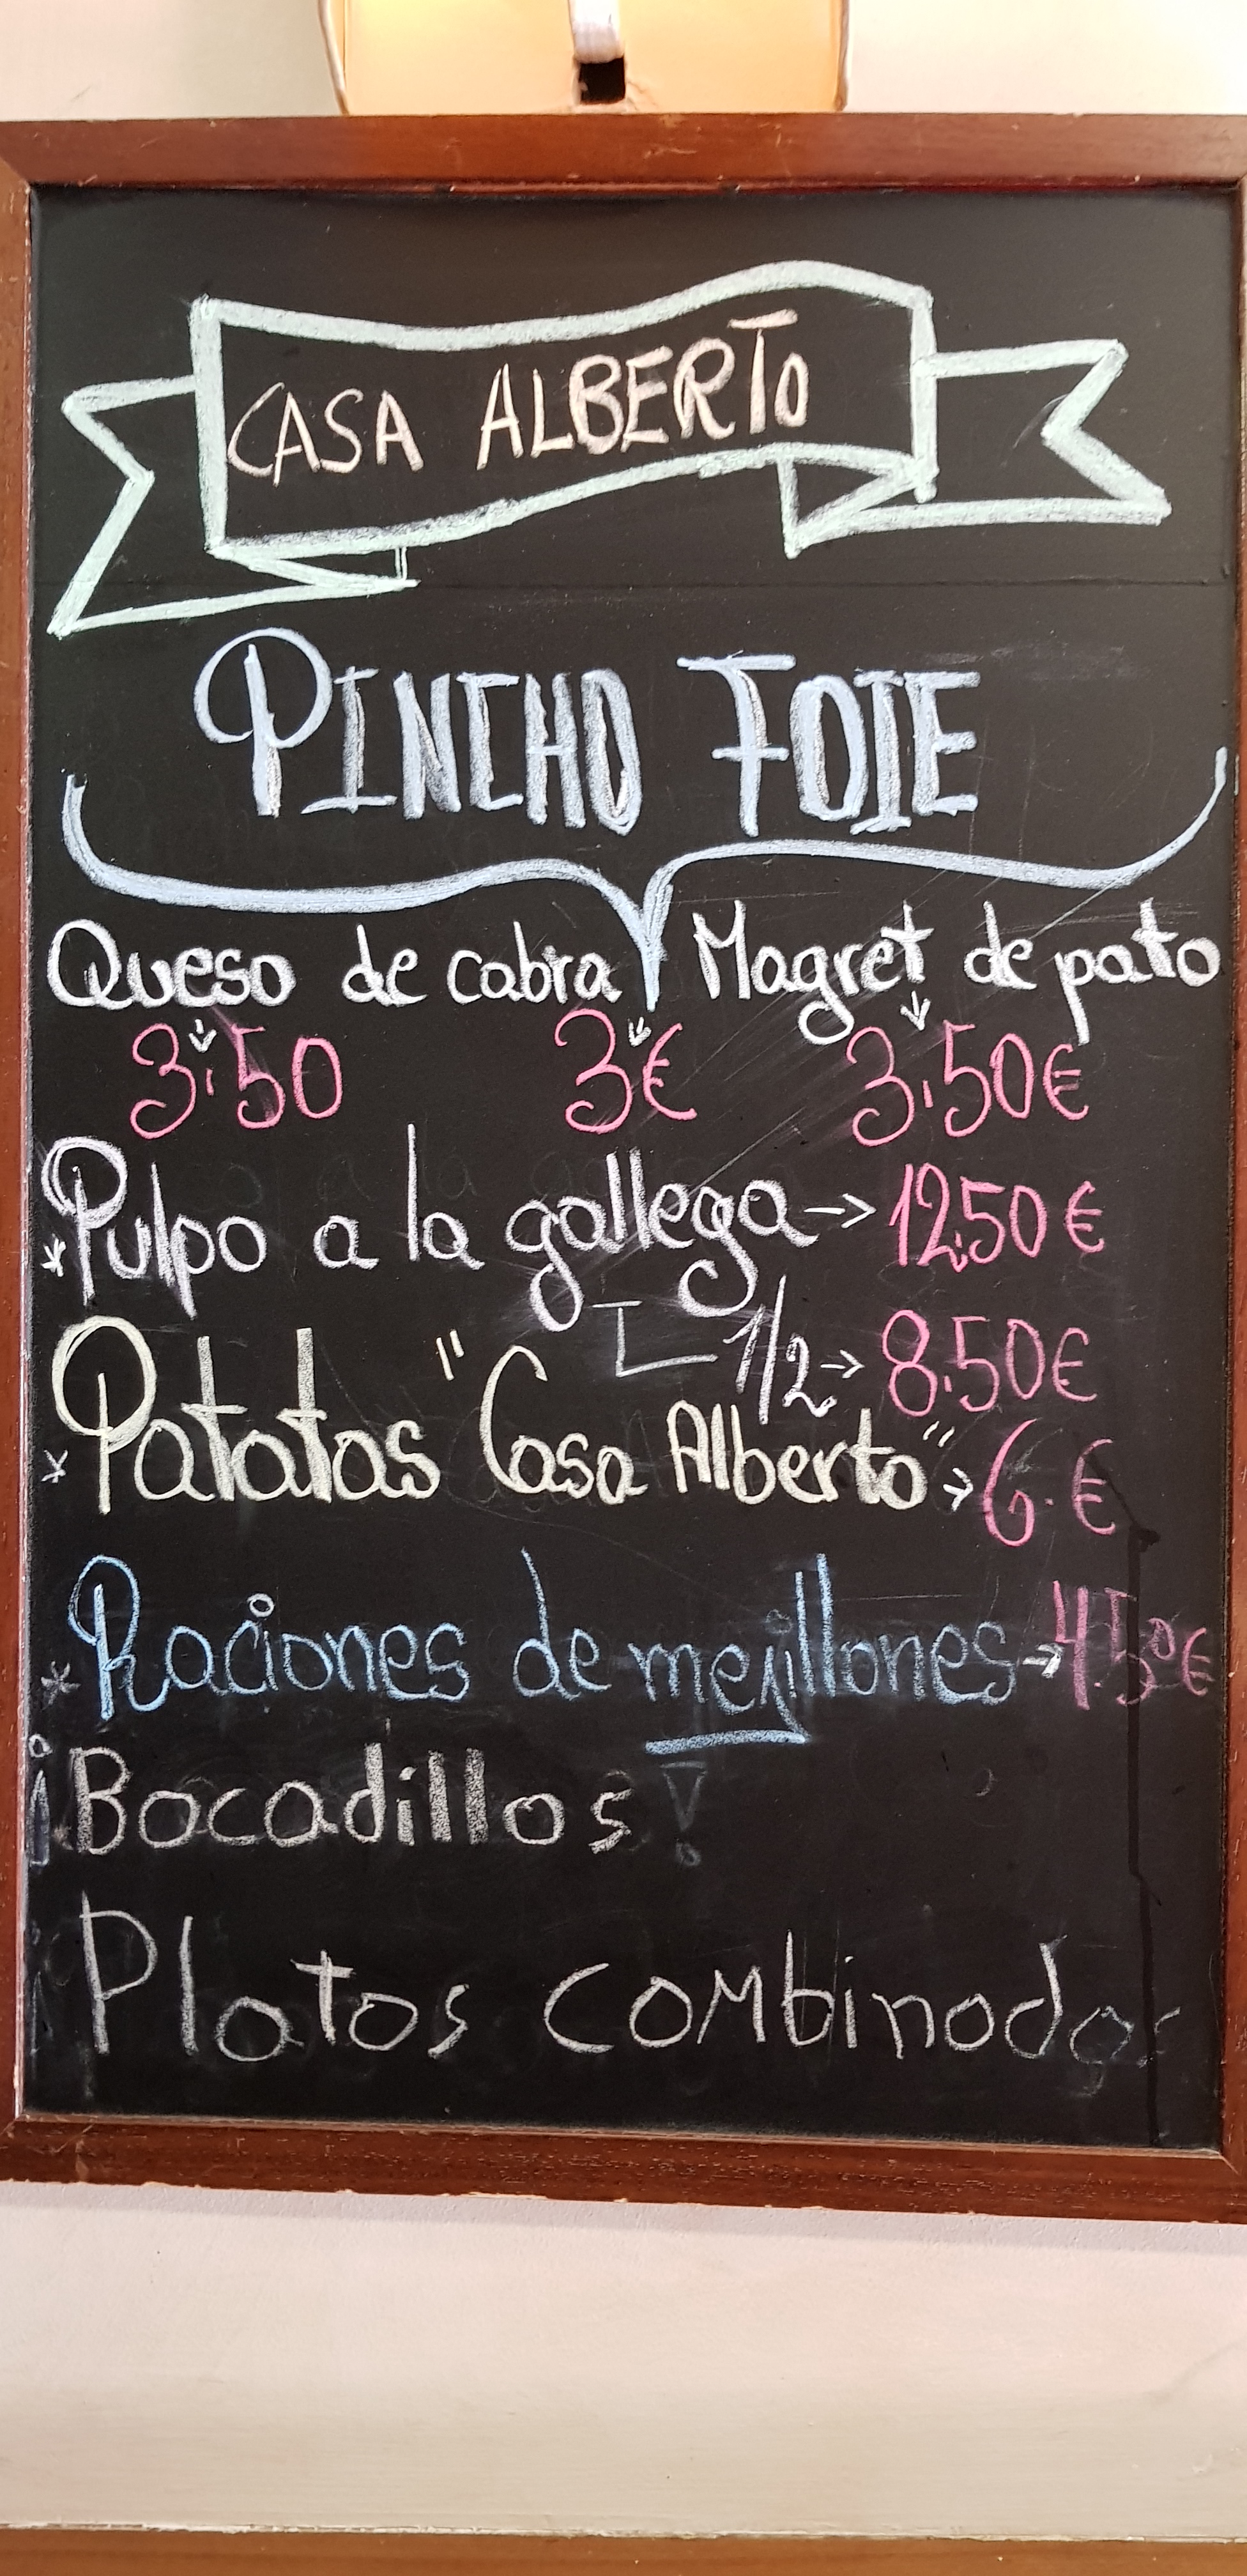 CASA ALBERTO
PINCHO FOIE
Queso de cabra Magret de pato
3'50 3€ 3.50€
* Pulpo a la gallega → 12.50€
1/2 → 8.50€
* Patatas "Casa Alberto" → 6.€
* Raciones de mejillones → 4.50€
¡Bocadillos!
Platos combinados